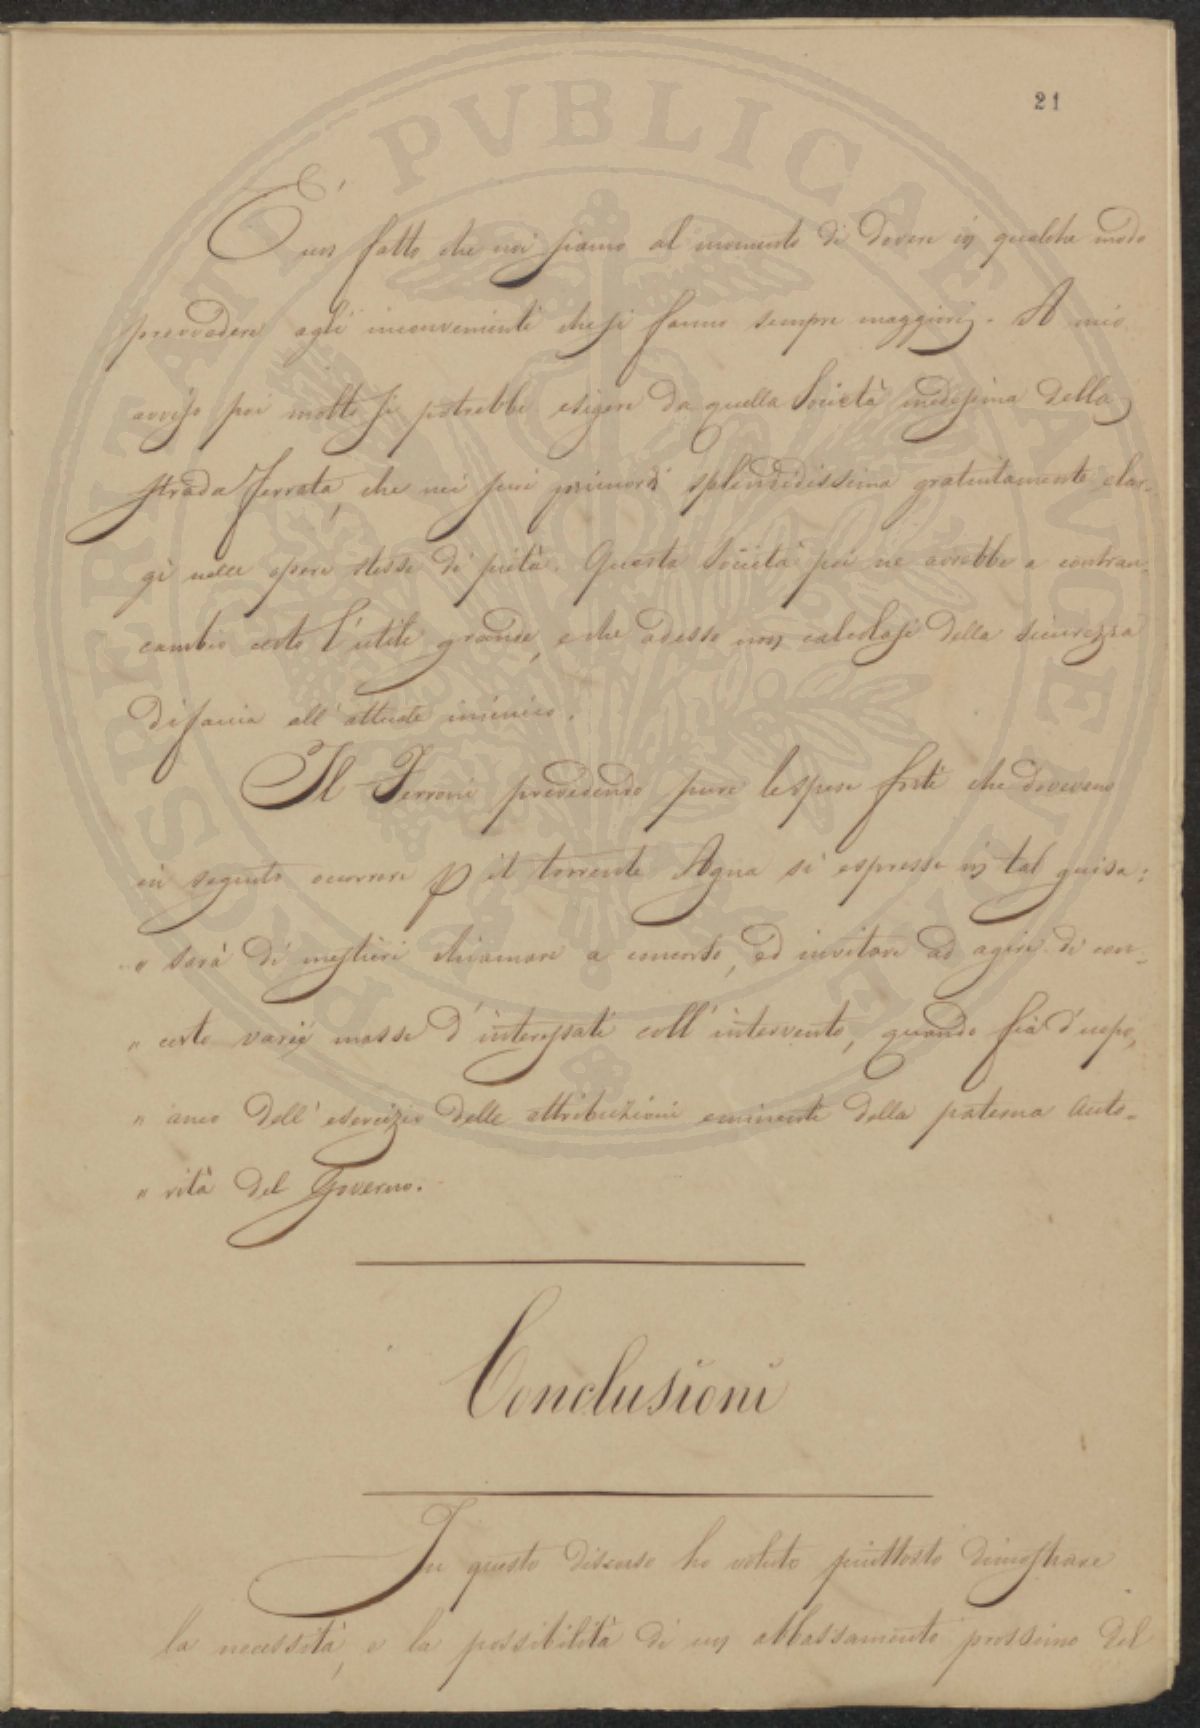 21
È un fatto che noi siamo al momento di dovere in qualche modo
provvedere agli inconvenienti che si fanno sempre maggiori. A mio
avviso poi molto si potrebbe esigere da quella Società medesima della
strada ferrata, che nei suoi primordi splendidissima gratuitamente elar-
gì nelle opere stesse di pietà. Questa Società poi ne avrebbe a contrac-
cambio certo l'utile grande, e che adesso non calcolasi della sicurezza
di faccia all'attuale inimico.
Il Ferroni prevedendo pure le spese forti che dovevano
in seguito occorrere p il torrente Agna si espresse in tal guisa:
" sarà di mestieri chiamare a concorso, ed invitare ad agire di con-
" certo varie masse d'interessati coll'intervento, quando fia d'uopo,
" anco dell'esercizio delle attribuzioni eminenti della paterna auto-
" rità del Governo.
Conclusioni
In questo discorso ho voluto piuttosto dimostrare
la necessità, e la possibilità di un abbassamento prossimo del